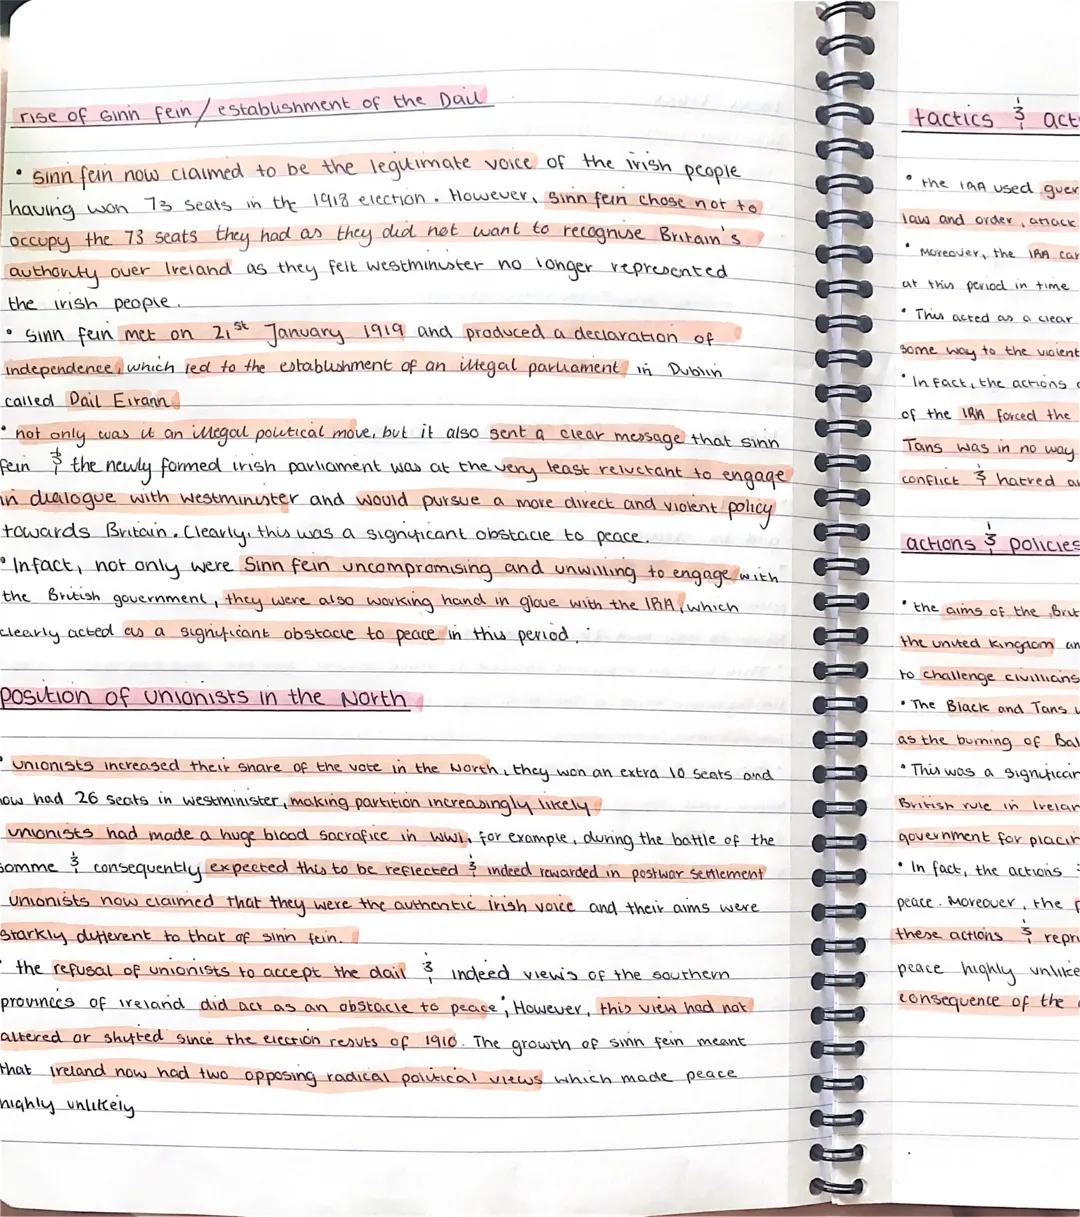 rise of sinn fein / establishment of the Dail
• sinn fein now claimed to be the legitimate voice of the irish people
having won 73 seats in the 1918 election. However, sinn fein chose not to
occupy the 73 seats they had as they did not want to recognise Britain's
authority over Ireland as they felt westminster no longer represented
the irish people.
• sinn fein met on 21st January 1919 and produced a declaration of
independence, which led to the establishment of an illegal parliament in Dublin
called Dail Eirann
• not only was it an illegal political move, but it also sent a clear message that sinn
fein & the newly formed irish parliament was at the very least reluctant to engage
in dialogue with westminster and would pursue a more direct and violent policy
towards Britain. Clearly, this was a significant obstacle to peace.
• Infact, not only were Sinn fein uncompromising and unwilling to engage with
the British government, they were also working hand in glove with the IRA, which
clearly acted as a significant obstacle to peace in this period.
position of unionists in the North
• unionists increased their share of the vote in the North, they won an extra 10 seats and
now had 26 seats in westminister, making partition increasingly likely
unionists had made a huge blood sacrafice in WWI, for example, during the battle of the
somme & consequently expected this to be reflected & indeed rewarded in postwar settlement
unionists now claimed that they were the authentic irish voice and their aims were
starkly different to that of sinn fein.
• the refusal of unionists to accept the dail & indeed views of the southern
provinces of ireland did act as an obstacle to peace; However, this view had not
altered or shifted since the election results of 1910. The growth of sinn fein meant
that Ireland now had two opposing radical political views which made peace
highly unlikely
tactics & act
• the IRA used guer
law and order, attack
• Moreover, the IRA car
at this period in time
• This acted as a clear
some way to the violent
• Infact, the actions
of the IRA forced the
Tans was in no way
conflict & hatred
actions & policies
• the aims of the Brit
the united kingdom an
to challenge civillians
• The Black and Tans
as the burning of Bal
• This was a significan
British rule in Irelan
government for placin
• In fact, the actions
peace. Moreover, the
these actions & repri
peace highly unlike
consequence of the